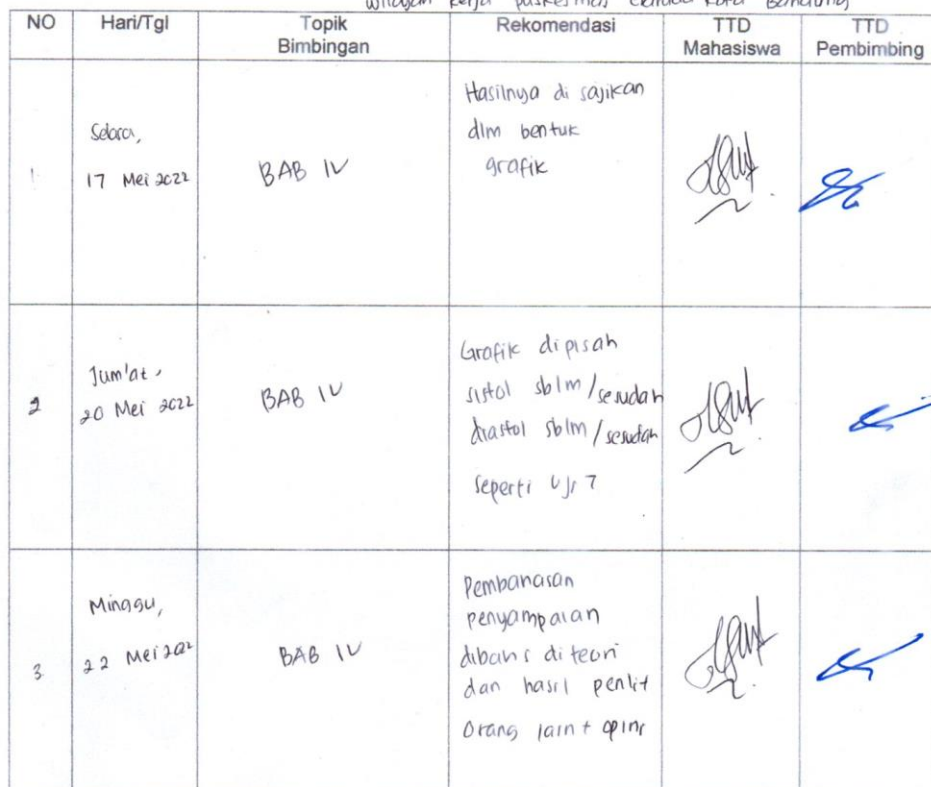 wilayah kerja puskesmas kota Bandung
NO Hari/Tgl Topik Bimbingan Rekomendasi TTD Mahasiswa TTD Pembimbing
1 Selasa, 17 Mei 2022 BAB IV
Hasilnya di sajikan
dlm bentuk
grafik
2 Jum'at, 20 Mei 2022 BAB IV
Grafik dipisah
sistol sblm/sesudah
diastol sblm/sesudah
seperti uji T
3 Minggu, 22 Mei 2022 BAB IV
Pembahasan
penyampaian
dibahs di teori
dan hasil penlit
orang lain + opini